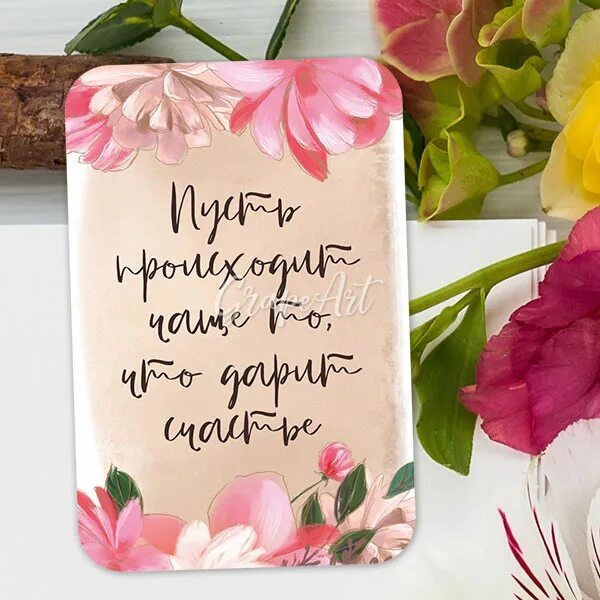 Пусть
происходит
чаще то,
что дарит
счастье
GrapeArt